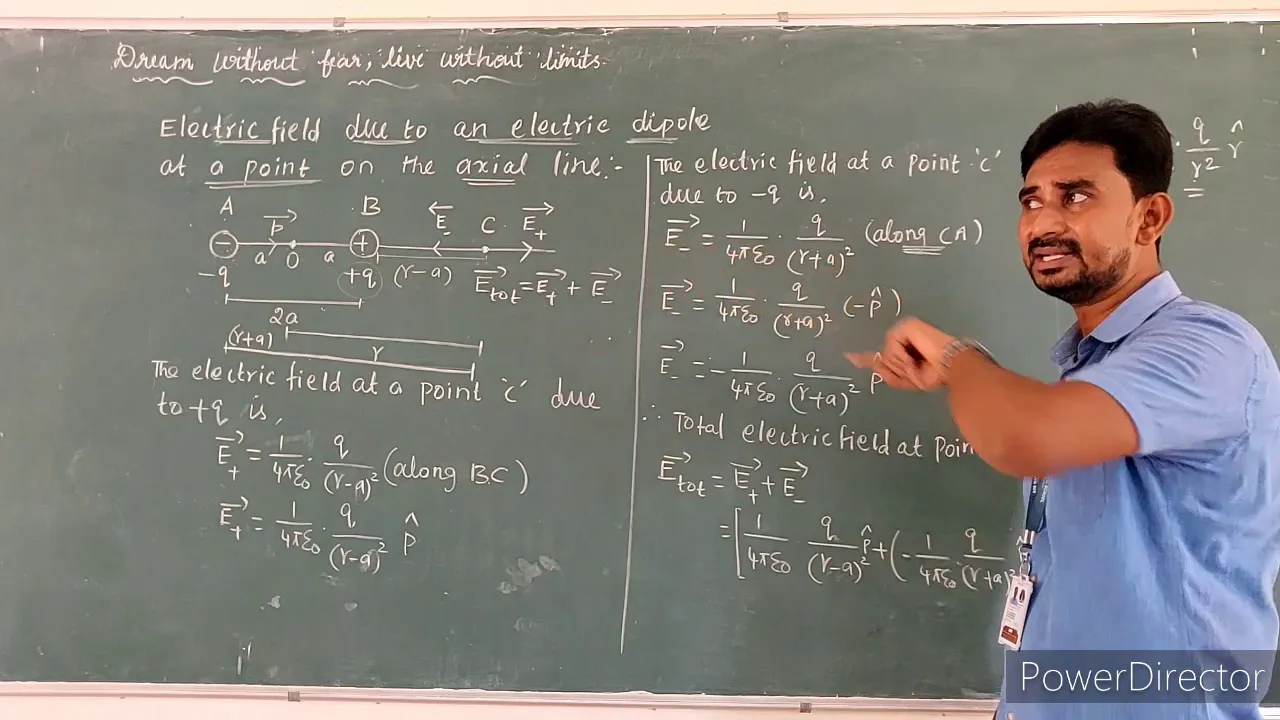 Dream without fear, live without limits.
Electric field due to an electric dipole
at a point on the axial line:-
A B
P⃗ E⃗₋ C E⃗₊
− a O a +
-q +q (r-a) E⃗tot = E⃗₊ + E⃗₋
2a
(r+a) r
The electric field at a point 'c' due
to +q is,
E⃗₊ = 1/4πε₀ · q/(r-a)² (along BC)
E⃗₊ = 1/4πε₀ · q/(r-a)² p̂
The electric field at a point 'c'
due to -q is,
E⃗₋ = 1/4πε₀ · q/(r+a)² (along CA)
E⃗₋ = 1/4πε₀ · q/(r+a)² (-p̂)
E⃗₋ = - 1/4πε₀ · q/(r+a)² p̂
∴ Total electric field at poin
E⃗tot = E⃗₊ + E⃗₋
= [1/4πε₀ q/(r-a)² p̂ + (- 1/4πε₀ q/(r+a)²
· q/r² r̂
PowerDirector